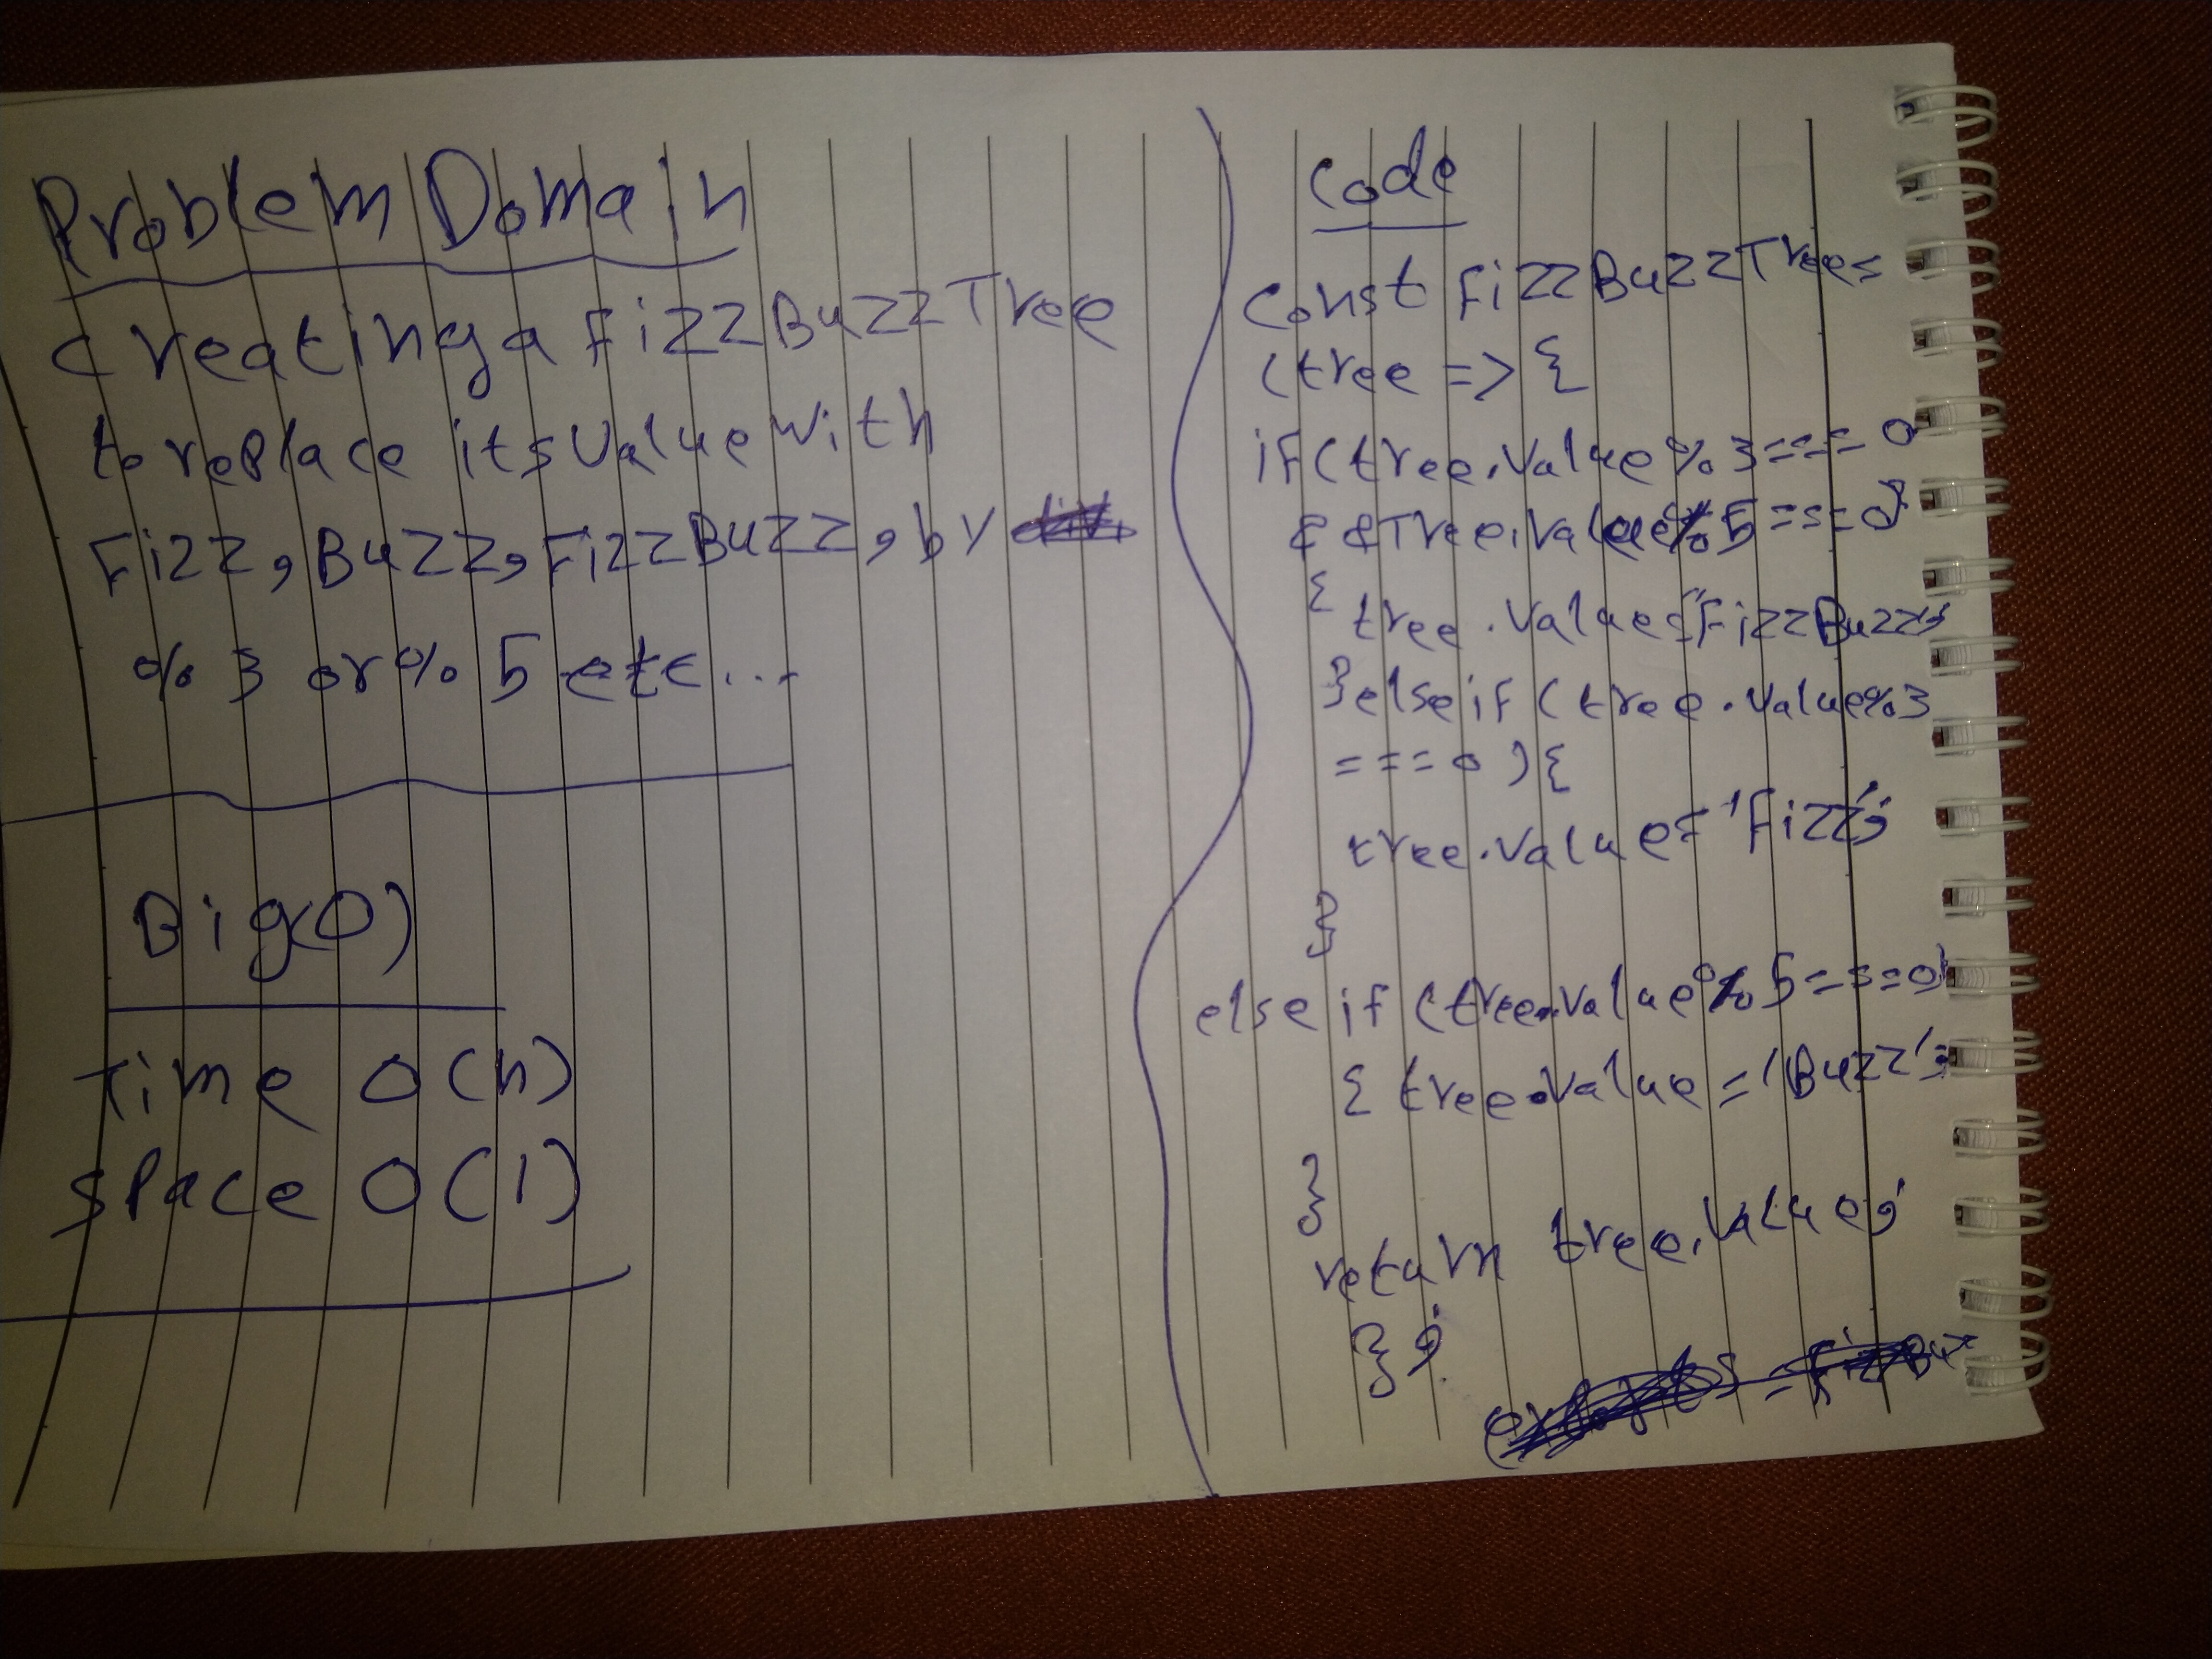 Problem Domain
Creating a FizzBuzzTree
to replace its value with
Fizz, Buzz, FizzBuzz, by
% 3 or % 5 etc...
Big(O)
Time O(n)
Space O(1)
Code
Const FizzBuzzTree =
(tree => {
if (tree.value % 3 === 0
&& Tree.value % 5 === 0)
{ tree.value = "FizzBuzz";
} else if (tree.value % 3
=== 0 ) {
tree.value = 'Fizz';
}
else if (tree.value % 5 === 0)
{ tree.value = 'Buzz';
}
return tree.value;
};